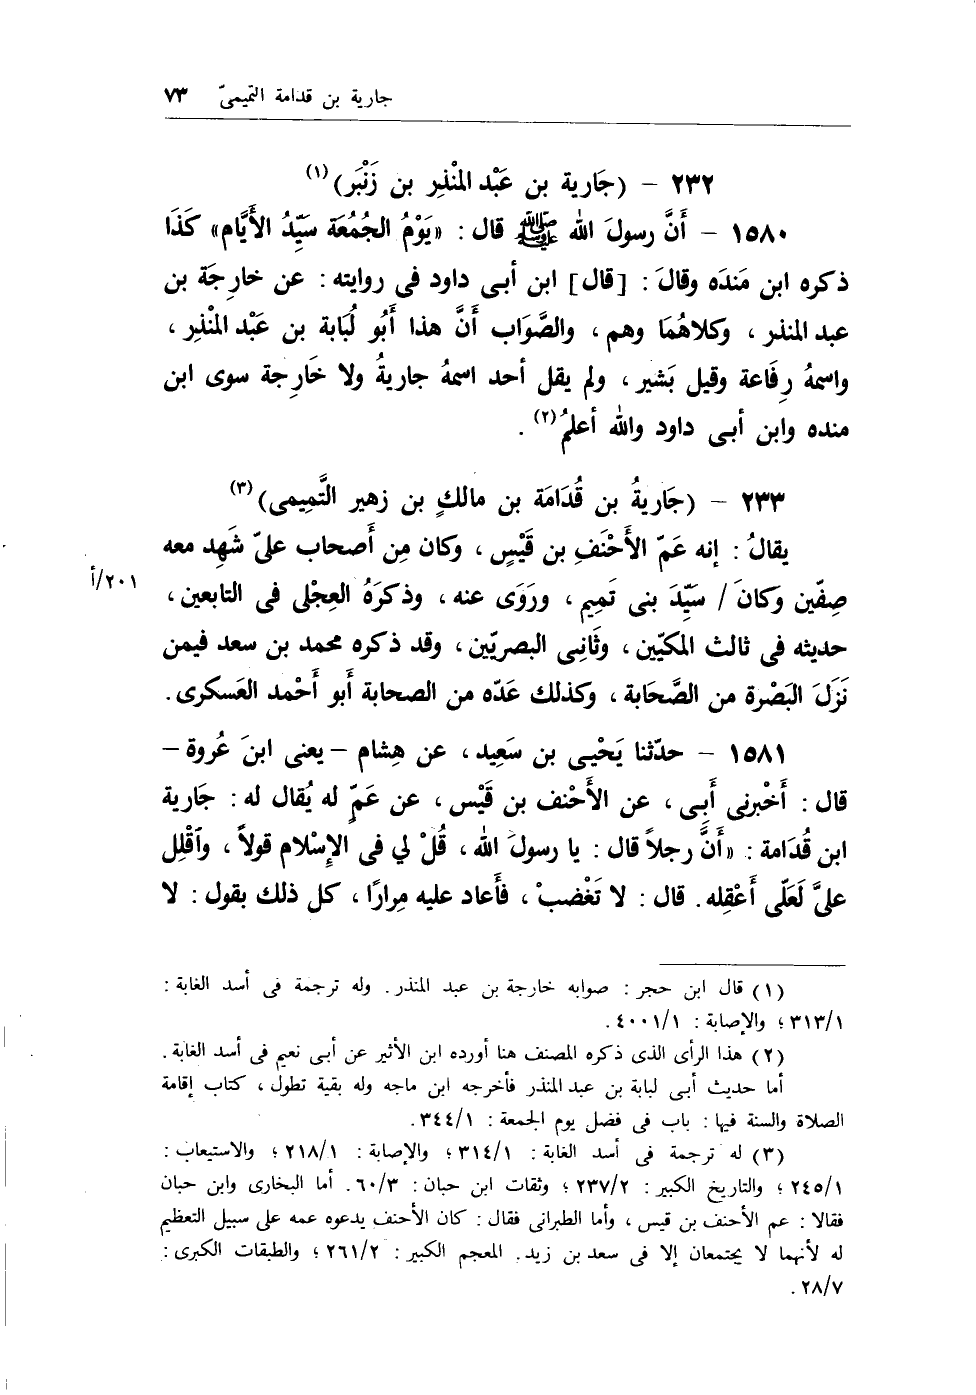 جارية بن قدامة التميمىّ ٧٣
٢٣٢ – (جَارية بن عَبْد المنْذِر بن زَنْبَر)(١)
١٥٨٠ – أَنَّ رسولَ الله ﷺ قال : «يَوْمُ الجُمُعَة سَيِّدُ الأَيَّام» كَذَا
ذكره ابن مَندَه وقالَ : [قال] ابن أبى داود فى روايته : عن خارِجَة بن
عبد المنذر ، وكلاهُمَا وهم ، والصَّوَاب أَنَّ هذا أَبُو لُبَابة بن عَبْد المنْذِر ،
واسمهُ رِفَاعة وقيل بَشير ، ولم يقل أحد اسمهُ جاريةُ ولا خَارِجة سوى ابن
منده وابن أبى داود والله أعلمُ(٢) .
٢٣٣ – (جَاريةُ بن قُدَامَة بن مالكٍ بن زهير التَّمِيمى)(٣)
يقالُ : إنه عَمّ الأَحْنَفِ بن قَيْسٍ ، وكان مِن أَصحاب علىّ شَهِد معه
صِفّين وكانَ / سَيِّدَ بنى تَمِيم ، ورَوَى عنه ، وذكرَهُ العِجْلى فى التابعين ،
٢٠١/أ
حديثه فى ثالث المكيّين ، وثَانِى البصريّين ، وقد ذكره محمد بن سعد فيمن
نَزَلَ البَصْرة من الصَّحَابة ، وكذلك عَدّه من الصحابة أَبو أَحْمد العَسكرى .
١٥٨١ – حدّثنا يَحْيى بن سَعِيد ، عن هِشام – يعنى ابنَ عُروة –
قال : أَخْبرنى أَبِى ، عن الأَحْنف بن قَيْس ، عن عَمّ له يُقال له : جَارية
ابن قُدَامة : «أَنَّ رجلاً قال : يا رسولَ الله ، قُلْ لي فى الإِسْلام قولاً ، وٱقْلِل
علىَّ لَعَلّى أَعْقِله . قال : لا تَغْضبْ ، فأَعاد عليه مِرارًا ، كل ذلك يقول : لا
(١) قال ابن حجر : صوابه خارجة بن عبد المنذر . وله ترجمة فى أسد الغابة :
٣١٣/١ ؛ والإصابة : ٤٠٠١/١ .
(٢) هذا الرأى الذى ذكره المصنف هنا أورده ابن الأثير عن أبى نعيم فى أسد الغابة .
أما حديث أبى لبابة بن عبد المنذر فأخرجه ابن ماجه وله بقية تطول ، كتاب إقامة
الصلاة والسنة فيها : باب فى فضل يوم الجمعة : ٣٤٤/١ .
(٣) له ترجمة فى أسد الغابة : ٣١٤/١ ؛ والإصابة : ٢١٨/١ ؛ والاستيعاب :
٢٤٥/١ ؛ والتاريخ الكبير : ٢٣٧/٢ ؛ وثقات ابن حبان : ٦٠/٣ . أما البخارى وابن حبان
فقالا : عم الأحنف بن قيس ، وأما الطبرانى فقال : كان الأحنف يدعوه عمه على سبيل التعظيم
له لأنهما لا يجتمعان إلا فى سعد بن زيد . المعجم الكبير : ٢٦١/٢ ؛ والطبقات الكبرى :
٢٨/٧ .